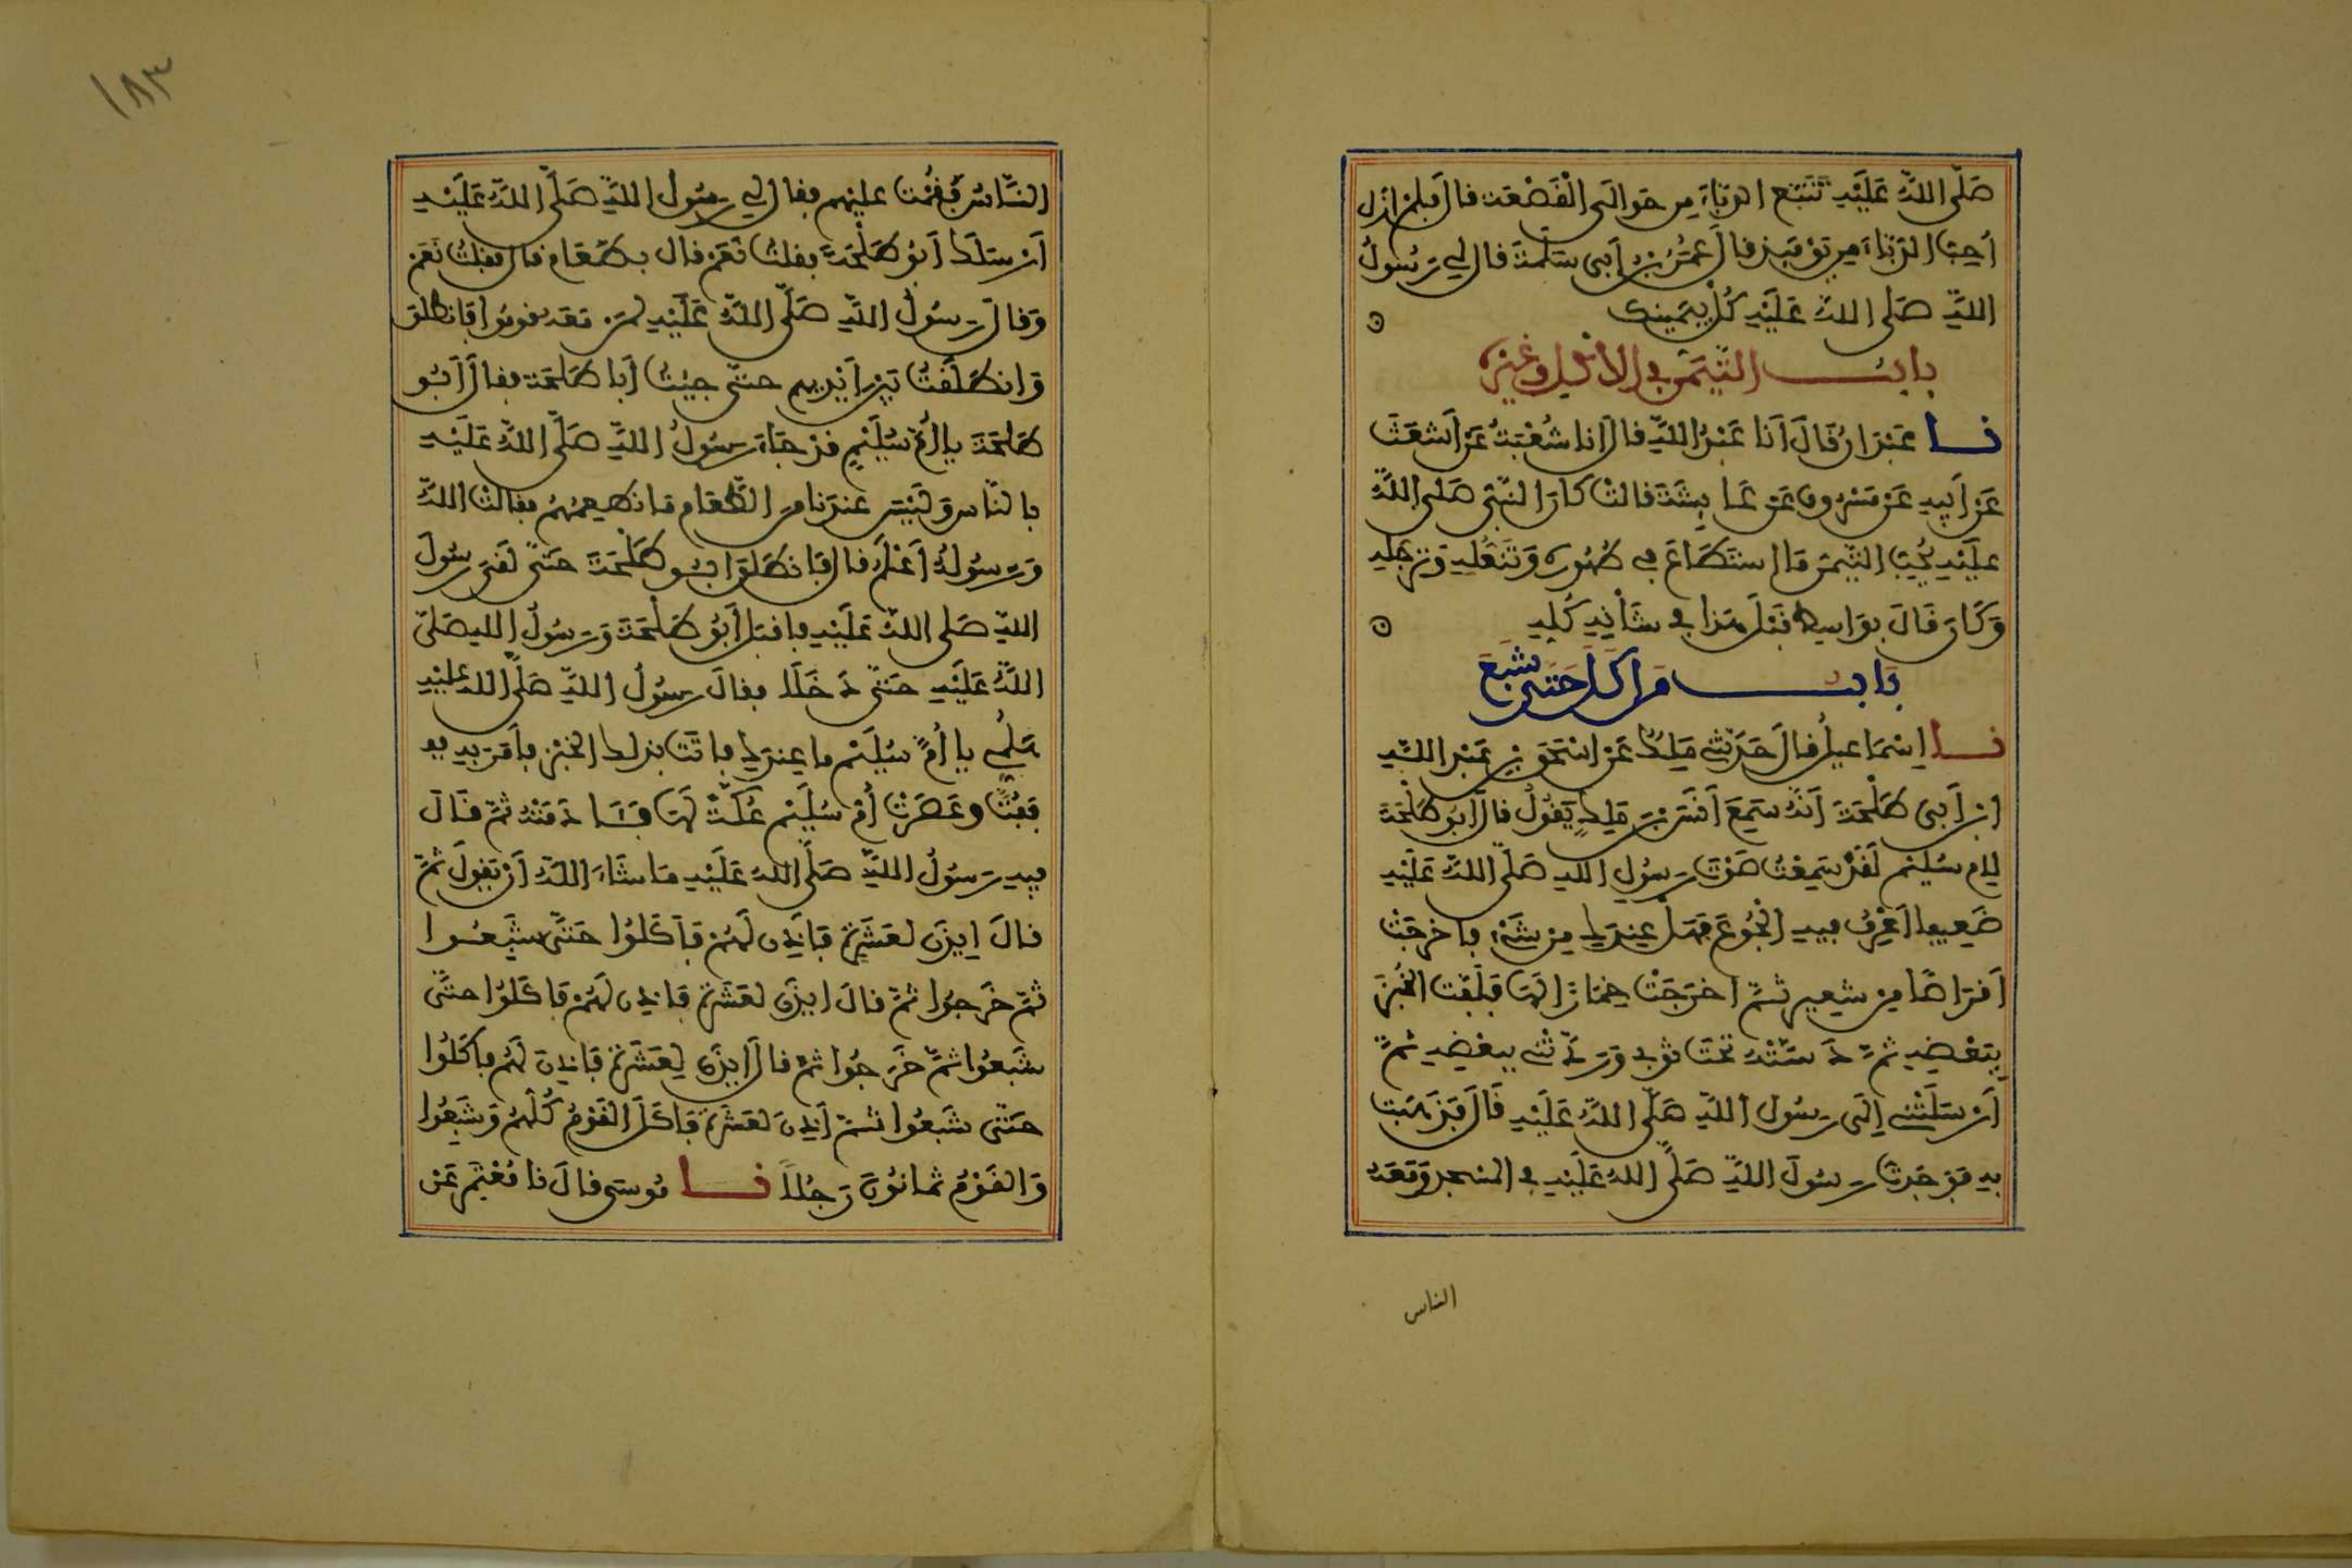 صَلَّى اللَّهُ عَلَيْهِ تَتَبَّعَ الدُّبَّاءَ مِن حَوَالَىِ الْقَصْعَة قال فلم ازل
اُحِبّ الدّبَّاءَ مِن يَوْمَئِذٍ قال عُمَرُ بن أبى سَلَمَةَ قال لِي رَسُولُ
اللهِ صَلى اللهُ عَلَيْهِ كُلْ بِيَمِينِكَ
بابُ التَّيَمُّنِ في الأكْلِ وغيْرِه
نا عَبْدَانُ قَالَ أَنَا عَبْدُ اللهِ قال انا شُعْبَةُ عَنْ أَشْعَثَ
عَنْ أَبِيهِ عَنْ مَسْرُوق عَنْ عَائِشَةَ قالتْ كانَ النَّبِيّ صَلى اللهُ
عليْهِ يُحِبّ التَّيَمُّنَ مَا استَطَاعَ فِي طُهُورِهِ وَتَنَعُّلِهِ وَتَرَجُّلِهِ
وَكَانَ قَالَ بِوَاسِطٍ قَبْلَ هَذا فِي شَأْنِهِ كُلِّهِ
بَابُ مَن اَكَلَ حَتَّى شَبِعَ
نا اِسْمَاعِيلُ قال حَدَّثَنِي مَلِكٌ عَنْ اِسْحَقَ بْنِ عَبْدِ اللَّهِ
ابن أَبِى طَلْحَةَ أَنَّهُ سَمِعَ أَنَسَ بْنَ مَلِكٍ يَقُولُ قال أَبُو طَلْحَةَ
لِامّ سُلَيْم لَقَدْ سَمِعْتُ صَوْتَ رَسُولِ اللهِ صَلّى اللهُ عَلَيْهِ
ضَعِيفا اَعْرِفُ فِيهِ الْجُوعَ فَهَلْ عِنْدَكِ مِن شَيْءٍ فاخْرَجَتْ
اَقْرَاصًا مِن شَعِيرٍ ثُمّ اخرَجَتْ خِمَارًا لَهَا فَلَفّتِ الْخُبْزَ
بِبَعْضِهِ ثُمَّ دَسَّتْهُ تَحْتَ ثوْبِي وَرَدَّتْنِي بِبَعْضِهِ ثُمَّ
أَرْسَلَتْنِي اِلَى رَسُولِ اللهِ صَلَّى اللهُ عَلَيْهِ قَالَ فَذَهَبْتُ
بِهِ فَوَجَدْتُ رَسُولَ اللهِ صَلَّى اللهُ عَلَيْهِ فِي الْمَسْجِدِ وَمَعَهُ
الناس
١٨٣
النَّاسُ فَقُمْتُ عليْهم فقال لِي رَسُولُ اللَّهِ صَلَّى اللَّهُ عَلَيْهِ
أَرْسَلَكَ أَبُو طَلْحَةَ فقلتُ نَعَمْ قال بِطَعَام قال فقلتُ نَعَمْ
وَقالَ رَسُولُ اللهِ صَلَّى اللهُ عَلَيْهِ لِمَنْ مَعَهُ قُومُوا فَانطلقَ
وَانطَلَقْتُ بَيْنَ أَيْدِيهِم حتَّى جِئتُ أَبا طَلحَة فقالَ أَبُو
طَلحَةَ يا أُمّ سُلَيْمٍ قَدْ جَاءَ رَسُولُ اللهِ صَلَّى اللهُ عَلَيْهِ
بالنّاس وَلَيْسَ عِنْدَنا مِنَ الطَّعَامِ مَا نُطعِمُهُمْ فقالتْ اللَّهُ
وَرَسُولُهُ أَعْلَمُ قال فَانطَلَقَ ابُو طَلْحَةَ حَتَّى لَقِيَ رَسُولَ
اللهِ صَلى اللهُ عَلَيْهِ فاقبَلَ أَبُو طَلْحَةَ وَرَسُولُ اللهِ صَلّى
اللَّهُ عَلَيْهِ حَتَّى دَخَلَا فقالَ رَسُولُ اللهِ صَلَّى اللهُ عَلَيْهِ
هَلُمِّي يا أُمّ سُلَيْم ما عِنْدَكِ فاتَتْ بذلك الخُبْزِ فأمَرَ بِهِ
فَفُتَّ وعَصَرَتْ أُمّ سُلَيْم عُكَّةً لَهَا فَادَمَتْهُ ثمّ قَالَ
فِيهِ رَسُولُ اللهِ صَلَّى اللهُ عَلَيْهِ مَا شَاءَ اللهُ أَنْ يَقولَ ثُمَّ
قالَ ايذَن لعَشَرَةٍ فَأَذِنَ لَهُمْ فَأَكَلُوا حَتَّى شَبِعُوا
ثُمّ خَرَجُوا ثُمَّ قالَ ايذَن لعَشَرَةٍ فَأذِن لَهُمْ فَأكَلُوا حتَّى
شَبِعُوا ثمَّ خَرَجُوا ثمّ قالَ ايذَن لِعَشَرَةٍ فَأَذِنَ لَهُم فأكَلُوا
حَتَّى شَبِعُوا ثمّ أَذِنَ لعَشَرَةٍ فَأكَلَ القَوْمُ كُلُّهُمْ وَشَبِعُوا
وَالقَوْمُ ثمانُونَ رَجُلاً نا مُوسَى قالَ نا مُعْتَمِر عَنْ